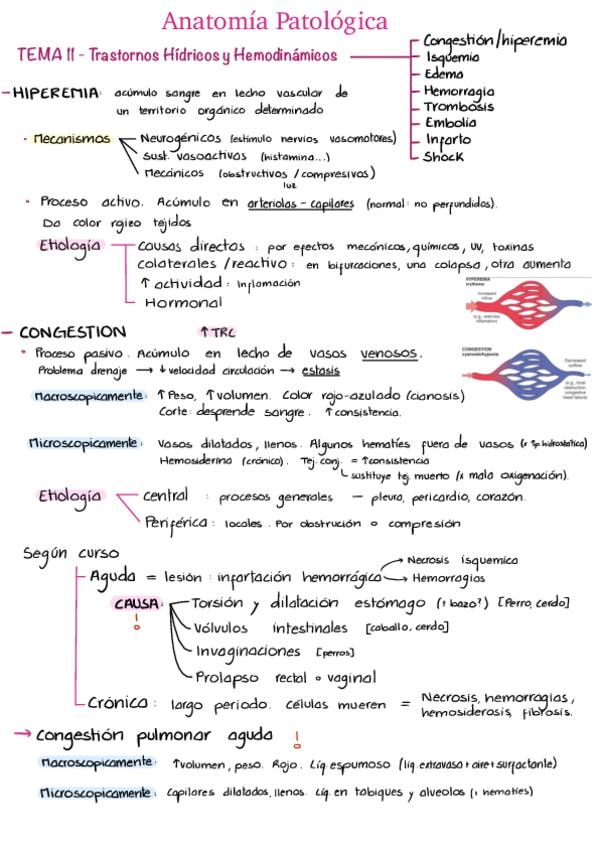 Anatomía Patológica
TEMA 11 - Trastornos Hídricos y Hemodinámicos
Congestión/hiperemia
Isquemia
Edema
Hemorragia
Trombosis
Embolia
Infarto
Shock
- HIPEREMIA: acúmulo sangre en lecho vascular de
un territorio orgánico determinado
· Mecanismos
Neurogénicos (estímulo nervios vasomotores)
Sust. vasoactivas (histamina...)
Mecánicos (obstructivos / compresivos)
luz
· Proceso activo. Acúmulo en arteriolas - capilares (normal: no perfundidos).
Da color rojizo tejidos
Etiología
causas directas : por efectos mecánicos, químicos, UV, toxinas
colaterales / reactivo : en bifurcaciones, una colapsa, otra aumenta
↑ actividad : Inflamación
Hormonal
HYPEREMIA
erythema
Increased
inflow
(e.g., exercise,
inflammation)
- CONGESTION ↑ TRC
· Proceso pasivo. Acúmulo en lecho de vasos venosos.
Problema drenaje → ↓ velocidad circulación → estasis
CONGESTION
cyanosis/hypoxia
Decreased
outflow
(e.g., local
obstruction,
congestive
heart failure)
Macroscopicamente: ↑ Peso, ↑ volumen. Color rojo-azulado (cianosis)
Corte: desprende sangre. ↑ consistencia.
Microscopicamente: Vasos dilatados, llenos. Algunos hematíes fuera de vasos (x ↑p. hidrostática)
Hemosiderina (crónico). Tej. conj. = ↑ consistencia
sustituye tej. muerto (x mala oxigenación).
Etiología
central : procesos generales - pleura, pericardio, corazón.
Periférica : locales. Por obstrución o compresión
Según curso
Aguda = lesión : infartación hemorrágica
→ Necrosis isquemica
→ Hemorragias
CAUSA: !
Torsión y dilatación estómago (+ bazo?) [Perro, cerdo]
Vólvulos intestinales [caballo, cerdo]
Invaginaciones [perros]
Prolapso rectal o vaginal
Crónica : largo periodo. células mueren = Necrosis, hemorragias,
hemosiderosis, fibrosis.
→ Congestión pulmonar aguda !
Macroscopicamente: ↑ volumen, peso. Rojo. Líq espumoso (líq. extravasa + aire + surfactante)
Microscopicamente: Capilares dilatados, llenos. Líq. en tabiques y alveolos (↑ hematíes)